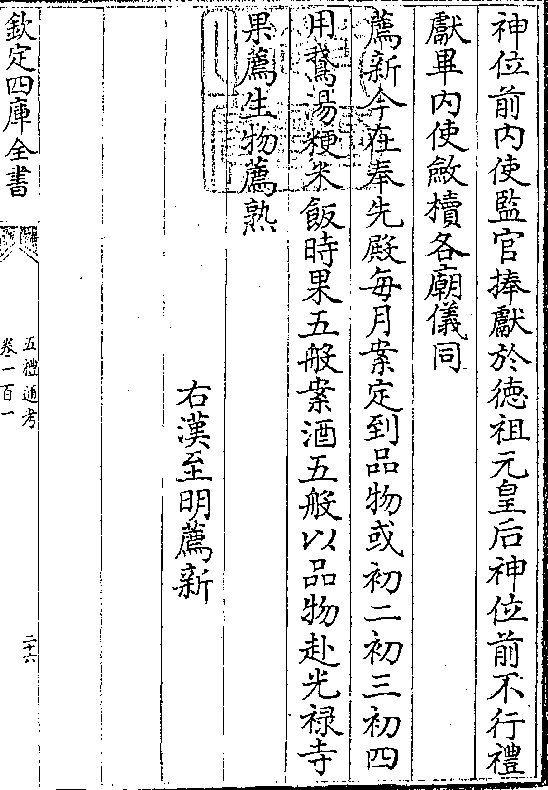 神位前内使監官捧獻於德祖元皇后神位前不行禮
獻畢内使斂櫝各廟儀同
薦新今在奉先殿每月案定到品物或初二初三初四
用鵝湯粳米飯時果五般案酒五般以品物赴光禄寺
果薦生物薦熟
右漢至明薦新
欽定四庫全書
五禮通考
卷一百一
二十六